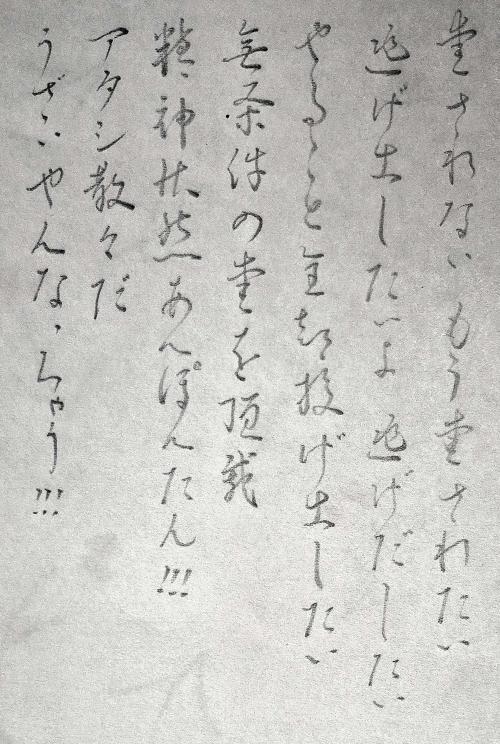 愛されないもう愛されたい
逃げ出したいよ逃げだしたい
やること全部投げ出したい
無条件の愛を頂戴
精神状態あんぽんたん!!!
アタシ散々だ
うざいやんなっちゃう!!!